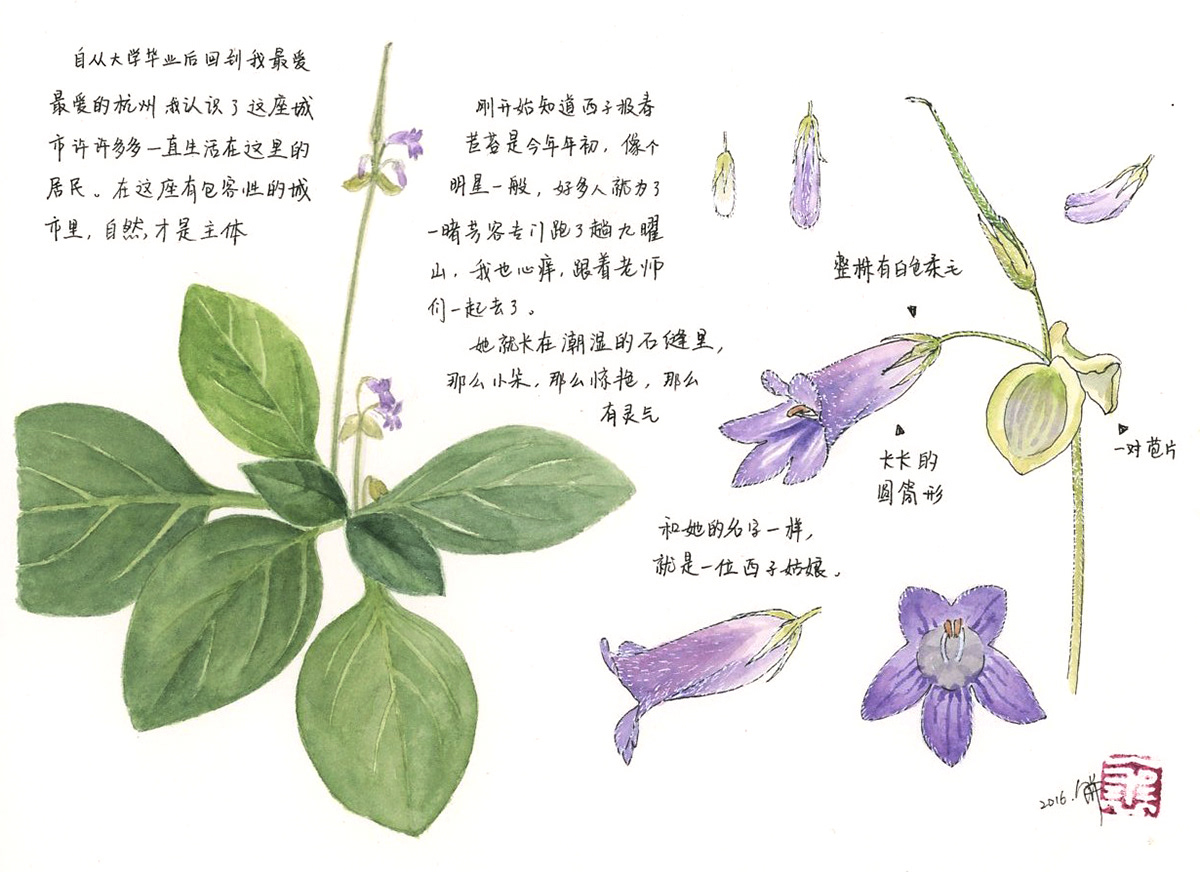 自从大学毕业后回到我最爱
最爱的杭州 我认识了这座城
市许许多多一直生活在这里的
居民。在这座有包容性的城
市里，自然，才是主体
刚开始知道西子报春
苣苔是今年年初，像个
明星一般，好多人就为了
一睹芳容专门跑了趟九曜
山，我也心痒，跟着老师
们一起去了。
她就长在潮湿的石缝里，
那么小朵，那么惊艳，那么
有灵气
整株有白色柔毛
长长的
圆筒形
一对苞片
和她的名字一样，
就是一位西子姑娘。
2016.